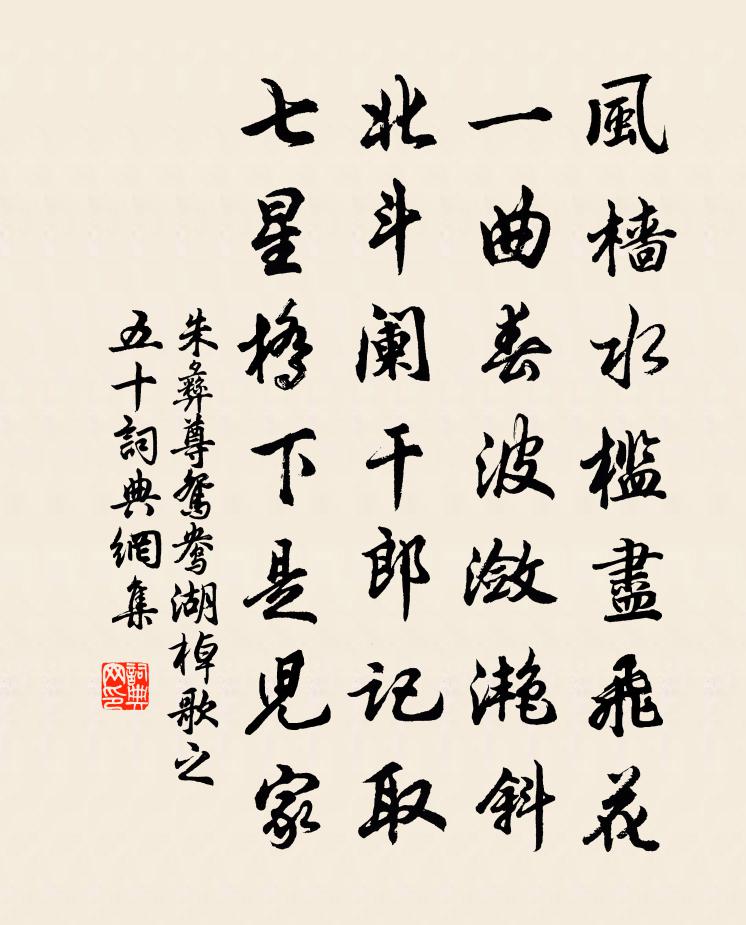 風檣水檻盡飛花
一曲春波瀲灔斜
北斗阑干郎記取
七星橋下是兒家
朱彝尊鴛鴦湖棹歌之
五十詞典網集
詞典网印